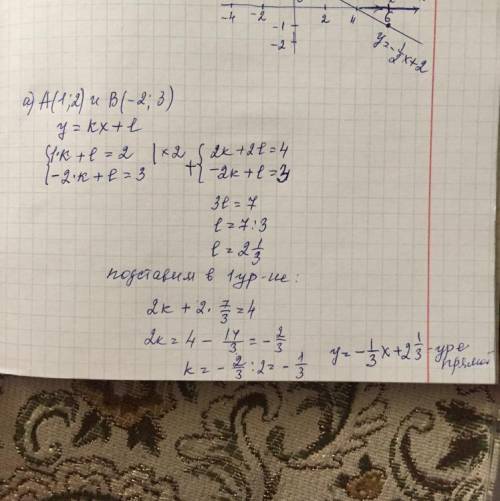 -4 -2 2 4 6
-1
-2
y=-1/2x+2
а) A(1;2) и B(-2; 3)
y=kx+l
{1·k+l=2 |×2 + {2k+2l=4
{-2·k+l=3 {-2k+l=3
3l=7
l=7:3
l=2 1/3
подставим в 1 ур-ие:
2k+2·7/3=4
2k=4-14/3=-2/3
k=-2/3:2=-1/3
y=-1/3x+2 1/3 - ур-е
прямой